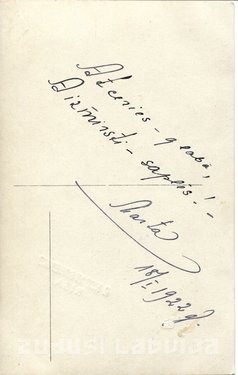 Atceries - glabā,
Aizmirsti - saplēs! -
Marta
18/I 1922 g.